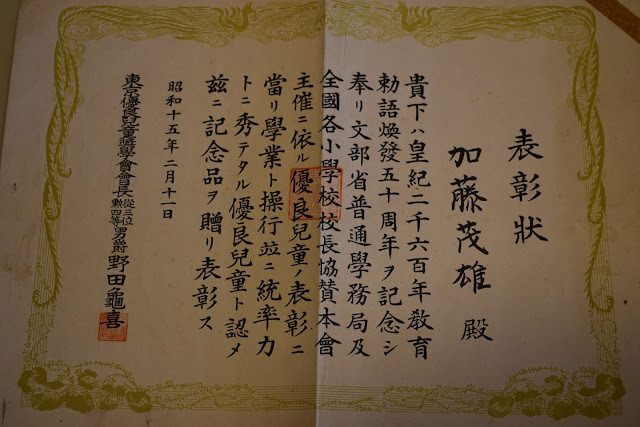 表彰状
加藤茂雄殿
貴下ハ皇紀二千六百年教育
勅語煥発五十周年ヲ記念シ
奉リ文部省普通學務局及
全國各小學校校長協賛本會
主催ニ依ル優良兒童ノ表彰ニ
當リ學業ト操行並ニ統率力
トニ秀テタル優良兒童ト認メ
茲ニ記念品ヲ贈リ表彰ス
昭和十五年二月十一日
東京優良兒童奬學會會長從三位勲四等男爵野田龜喜